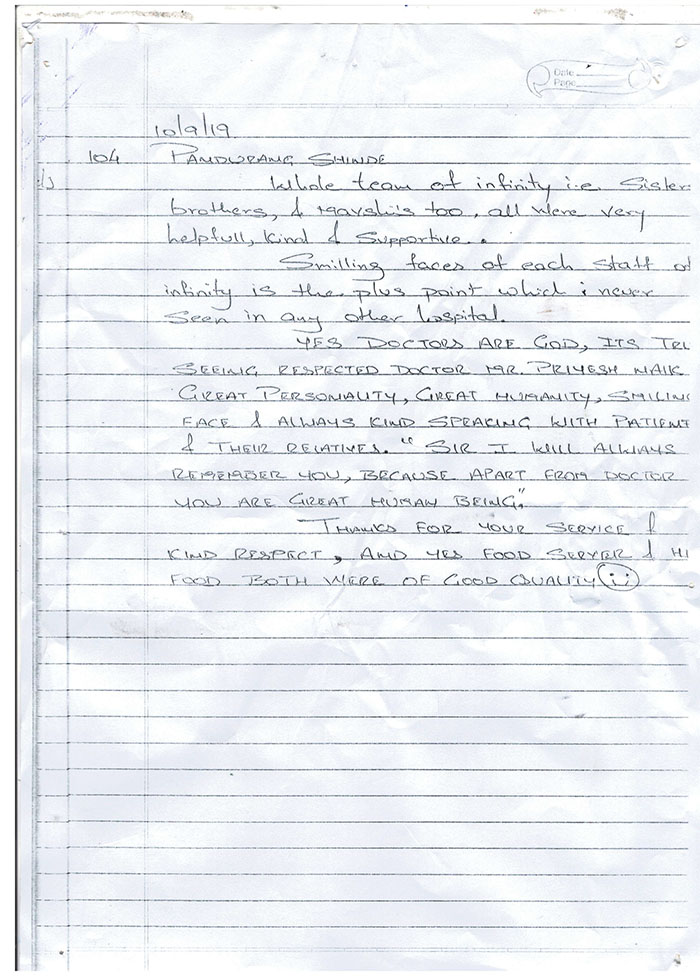 Date
Page
10/9/19
104 PANDURANG SHINDE
Whole team of infinity i.e. Sister
brothers, & Mavshi's too, all were very
helpfull, kind & Supportive.
Smilling faces of each staff of
infinity is the plus point which i never
seen in any other hospital.
YES DOCTORS ARE GOD, ITS
SEEING RESPECTED DOCTOR MR. PRIYESH NAIK
GREAT PERSONALITY, GREAT HUMANITY, SMILIN
FACE & ALWAYS KIND SPEAKING WITH PATIENT
& THEIR RELATIVES. "SIR I WILL ALWAYS
REMEMBER YOU, BECAUSE APART FROM DOCTOR
YOU ARE GREAT HUMAN BEING."
THANKS FOR YOUR SERVICE &
KIND RESPECT, AND YES FOOD SERVER &
FOOD BOTH WERE OF GOOD QUALITY